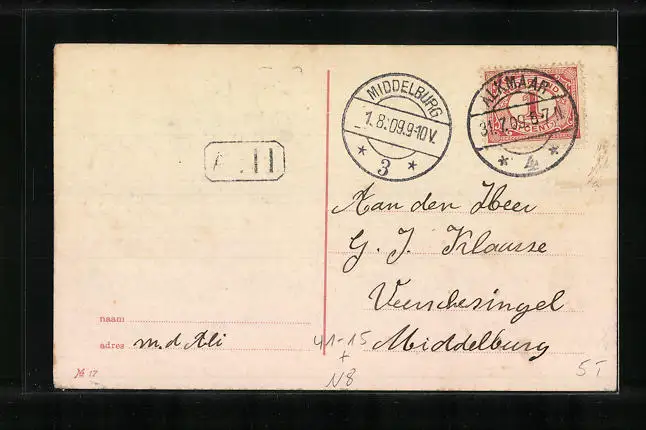 MIDDELBURG
1.8.09.9-10V.
* 3 *
ALKMAAR
31.7.09.6-7N
* 4 *
1
CENT
Aan den Heer
G. J. Klausse
Middelburg
naam
adres m.d Ali
№ 17
41-15
+
N8
5T